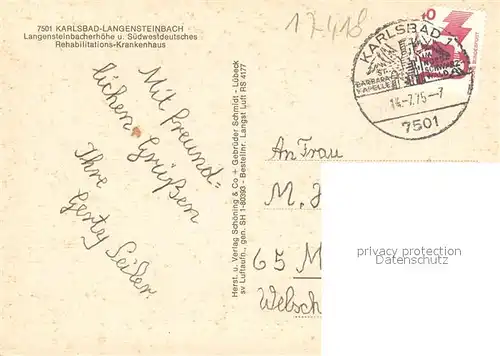 7501 KARLSBAD-LANGENSTEINBACH
Langensteinbacherhöhe u. Südwestdeutsches
Rehabilitations-Krankenhaus
17418
Mit freund-
lichen Grüßen
Ihre
Gerty Seiler.
Herst. u. Verlag Schöning & Co + Gebrüder Schmidt - Lübeck
sv Luftaufn., gen. SH 1-80393 - Bestellnr. Langst Luft RS 4177
KARLSBAD
ST.
BARBARA
KAPELLE
14.-7.75-7
7501
An Frau
M.
65 M
Welsch
privacy protection
Datenschutz